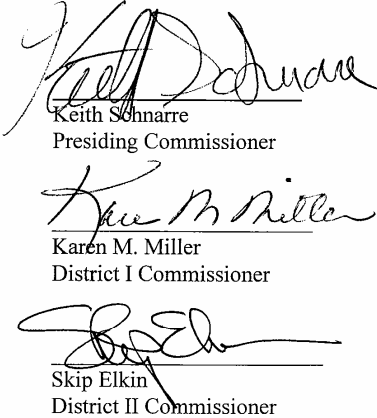 Keith Schnarre
Keith Schnarre
Presiding Commissioner
Karen M Miller
Karen M. Miller
District I Commissioner
Skip Elkin
Skip Elkin
District II Commissioner